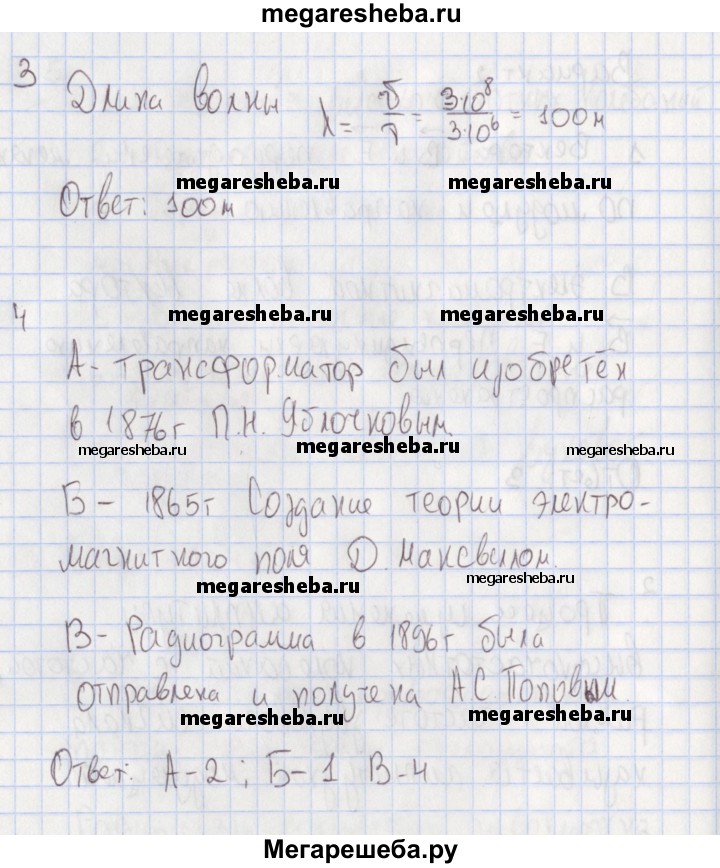 megaresheba.ru
3 Длина волны λ = υ/ν = 3·10⁸/3·10⁶ = 100м
megaresheba.ru megaresheba.ru
Ответ: 100м
megaresheba.ru megaresheba.ru
4
А- трансформатор был изобретён
в 1876г П.Н. Яблочковым.
megaresheba.ru megaresheba.ru megaresheba.ru
Б- 1865г Создание теории электро-
магнитного поля Д. Максвилом.
megaresheba.ru megaresheba.ru
В- Радиограмма в 1896г была
отправлена и получена А.С. Поповым.
megaresheba.ru megaresheba.ru
Ответ: А-2; Б-1 В-4
Мегарешеба.ру